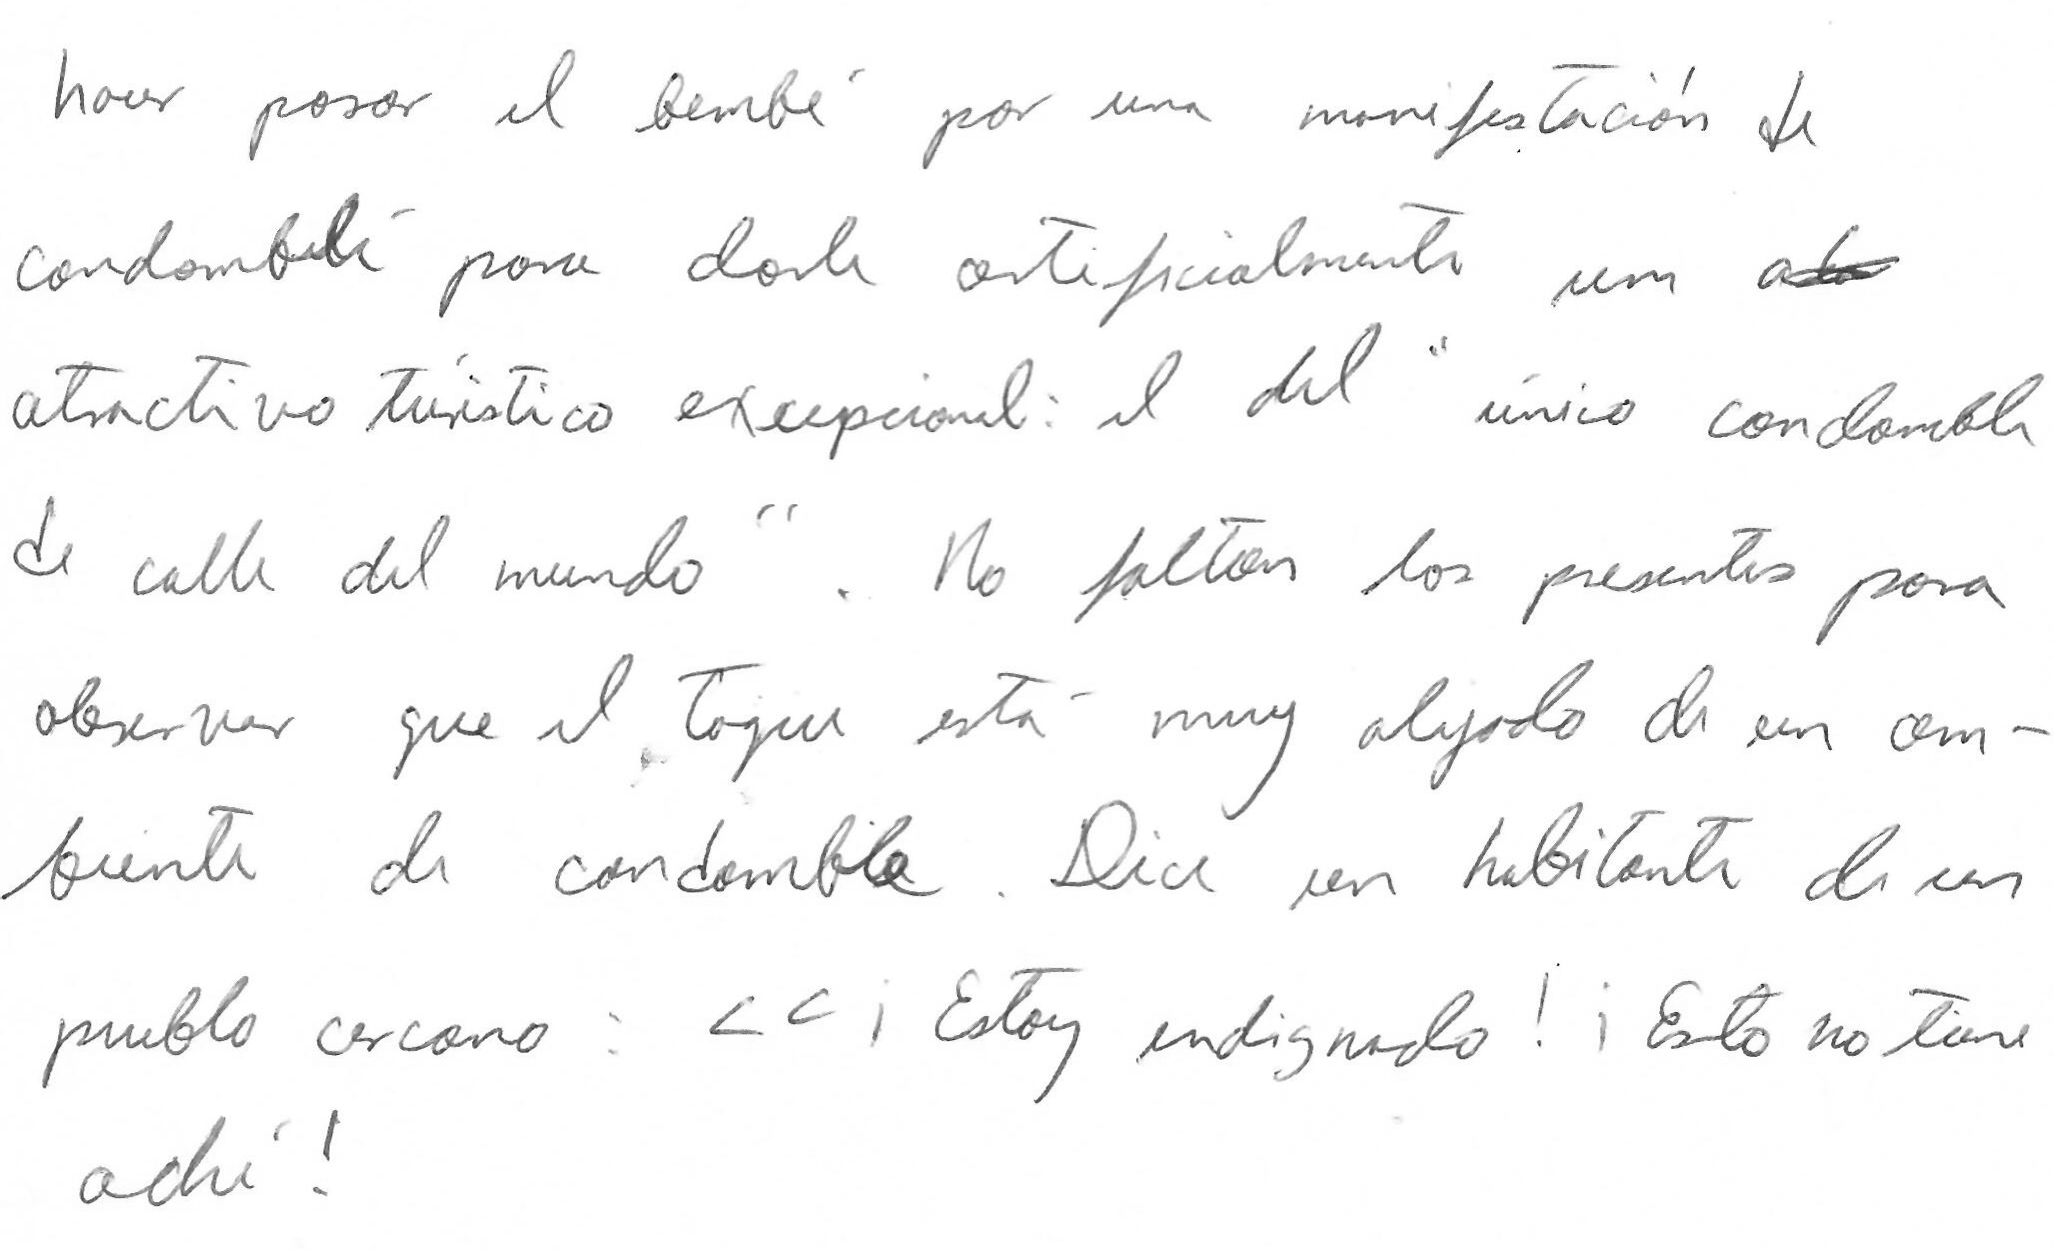 hacer pasar el bembé por una manifestación de
candomblé para darle artificialmente un
atractivo turístico excepcional: el del "único candomble
de calle del mundo". No faltan los presentes para
observar que el toque está muy alejado de un am-
biente de candomble. Dice un habitante de un
pueblo cercano: <<¡Estoy indignado! ¡Esto no tiene
aché!